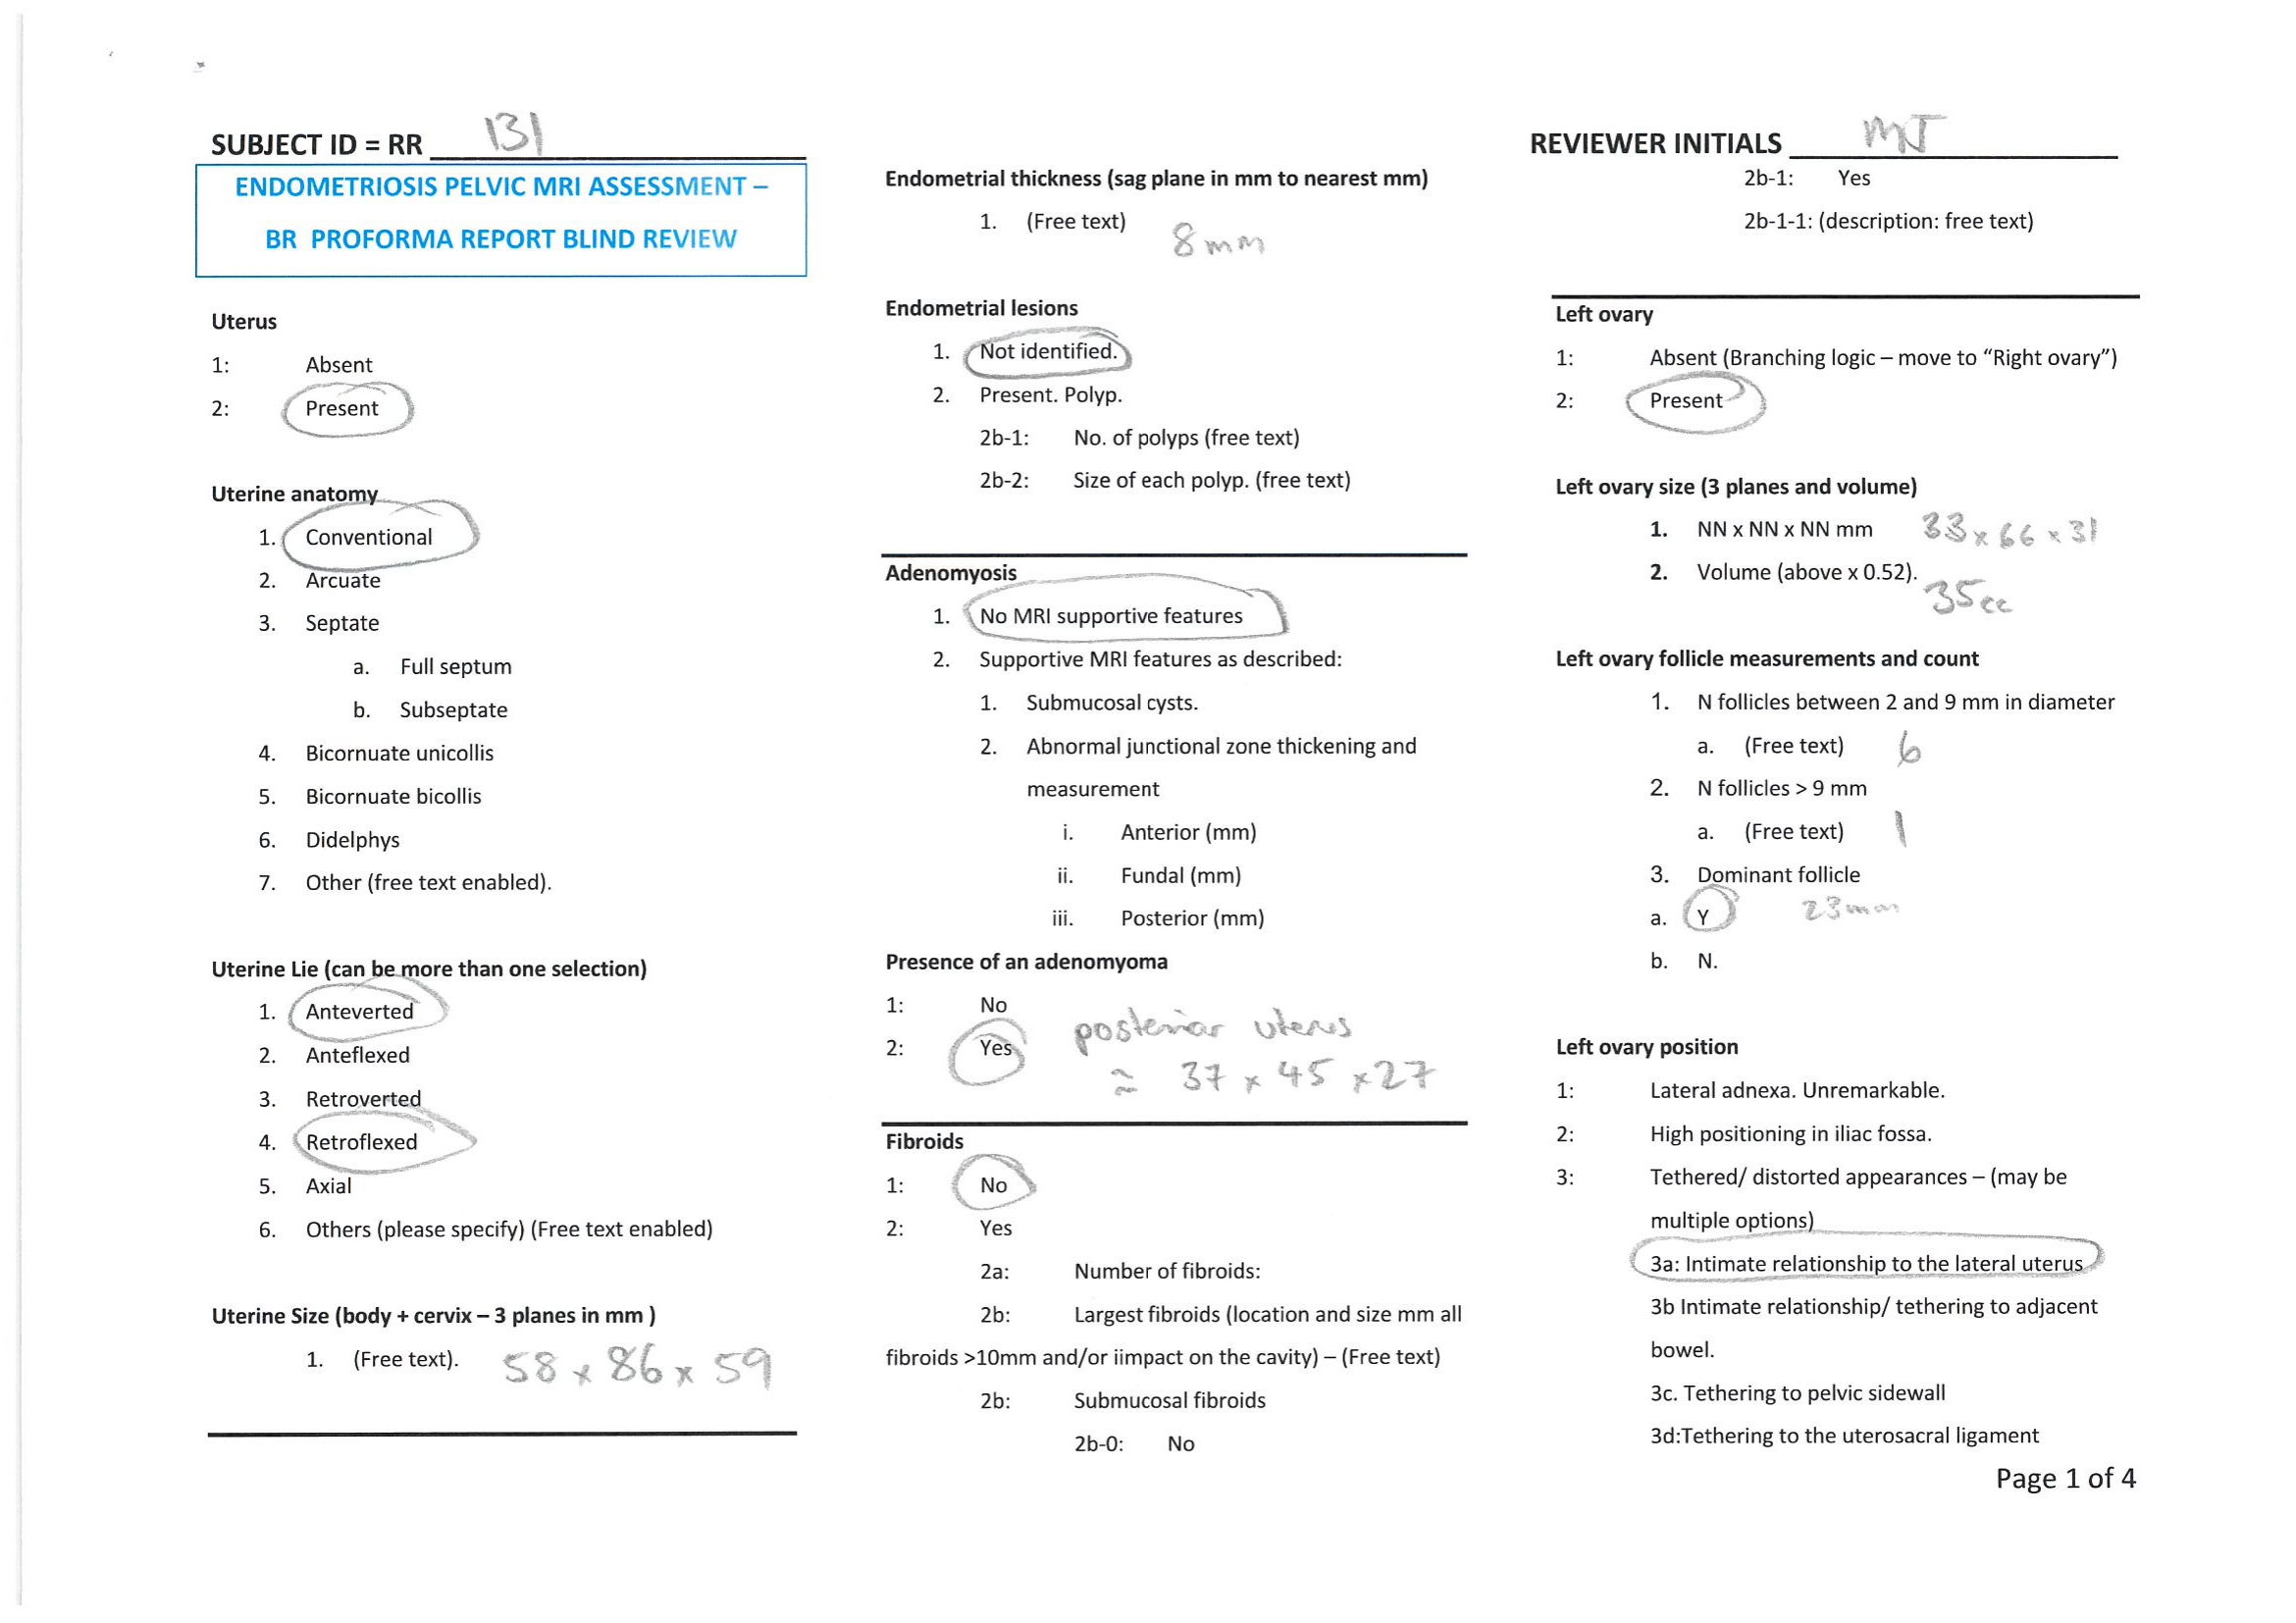 SUBJECT ID = RR 131
ENDOMETRIOSIS PELVIC MRI ASSESSMENT –
BR PROFORMA REPORT BLIND REVIEW
Uterus
1: Absent
2: Present
Uterine anatomy
1. Conventional
2. Arcuate
3. Septate
a. Full septum
b. Subseptate
4. Bicornuate unicollis
5. Bicornuate bicollis
6. Didelphys
7. Other (free text enabled).
Uterine Lie (can be more than one selection)
1. Anteverted
2. Anteflexed
3. Retroverted
4. Retroflexed
5. Axial
6. Others (please specify) (Free text enabled)
Uterine Size (body + cervix – 3 planes in mm )
1. (Free text). 58 x 86 x 59
Endometrial thickness (sag plane in mm to nearest mm)
1. (Free text) 8mm
Endometrial lesions
1. Not identified.
2. Present. Polyp.
2b-1: No. of polyps (free text)
2b-2: Size of each polyp. (free text)
Adenomyosis
1. No MRI supportive features
2. Supportive MRI features as described:
1. Submucosal cysts.
2. Abnormal junctional zone thickening and
measurement
i. Anterior (mm)
ii. Fundal (mm)
iii. Posterior (mm)
Presence of an adenomyoma
1: No
2: Yes posterior uterus
≈ 37 x 45 x 27
Fibroids
1: No
2: Yes
2a: Number of fibroids:
2b: Largest fibroids (location and size mm all
fibroids >10mm and/or iimpact on the cavity) – (Free text)
2b: Submucosal fibroids
2b-0: No
REVIEWER INITIALS MJ
2b-1: Yes
2b-1-1: (description: free text)
Left ovary
1: Absent (Branching logic – move to “Right ovary”)
2: Present
Left ovary size (3 planes and volume)
1. NN x NN x NN mm 33 x 66 x 31
2. Volume (above x 0.52). 35cc
Left ovary follicle measurements and count
1. N follicles between 2 and 9 mm in diameter
a. (Free text) 6
2. N follicles > 9 mm
a. (Free text) 1
3. Dominant follicle
a. Y 23mm
b. N.
Left ovary position
1: Lateral adnexa. Unremarkable.
2: High positioning in iliac fossa.
3: Tethered/ distorted appearances – (may be
multiple options)
3a: Intimate relationship to the lateral uterus
3b Intimate relationship/ tethering to adjacent
bowel.
3c. Tethering to pelvic sidewall
3d:Tethering to the uterosacral ligament
Page 1 of 4